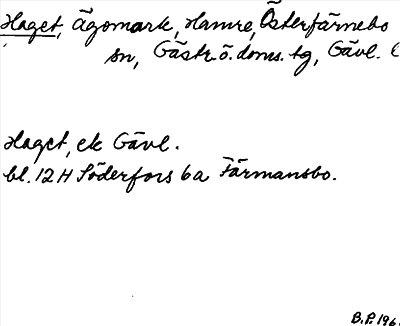 Haget, Ägomark, Hamre, Österfärnebo
sn, Gästr.ö.doms.tg, Gävl. l
Haget, ek Gävl.
bl. 12 H Söderfors 6a Färmansbo.
B.P. 196